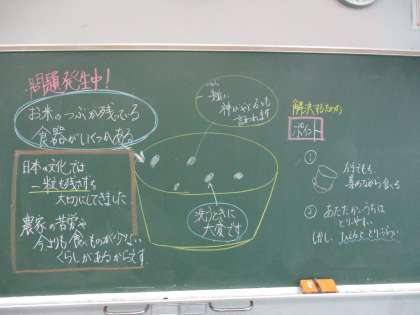 問題発生中!
お米のつぶが残っている
食器がいくつかある
日本の文化では
一粒も残さずを
大切にしてきました
農家の苦労や
今よりも食べものが少ない
くらしがあるからです
一粒に
神がやどるとも
言われます
洗うときに
大変です
解決するために
ポイント
①
集めながら食べる
② あたたかいうちは
とりやすい
しかし
とりづらい